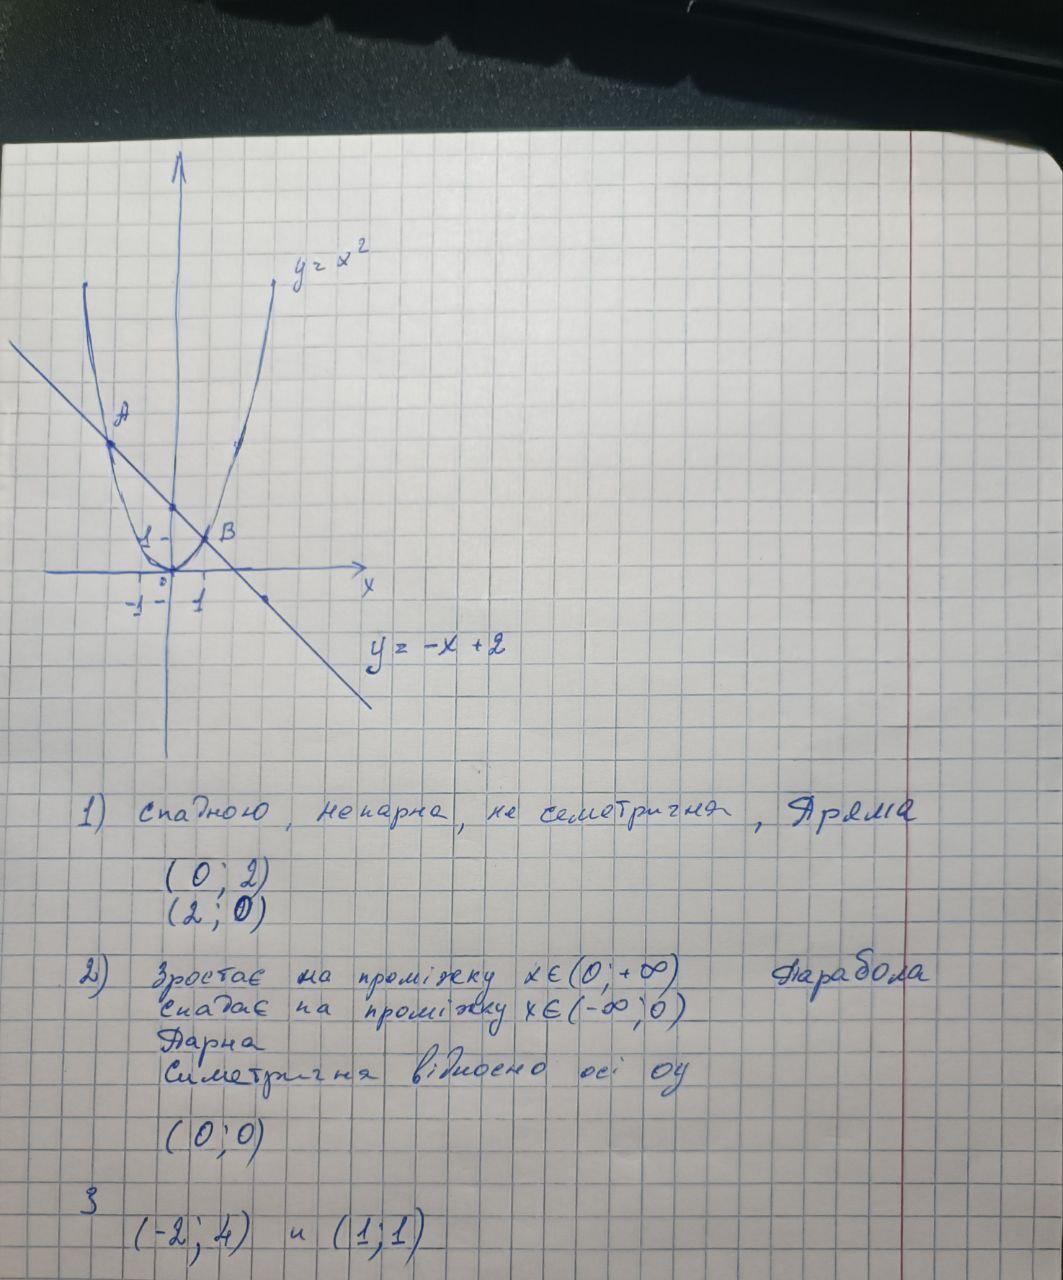 y = x²
A
1
B
0
x
-1
1
y = -x + 2
1) спадною, непарна, не семетричня, Пряма
(0; 2)
(2; 0)
2) Зростає на проміжку x∈(0;+∞) Парабола
Спадає на проміжку x∈(-∞;0)
Парна
Симетричня відносено осі oy
(0; 0)
3
(-2; 4) и (1; 1)